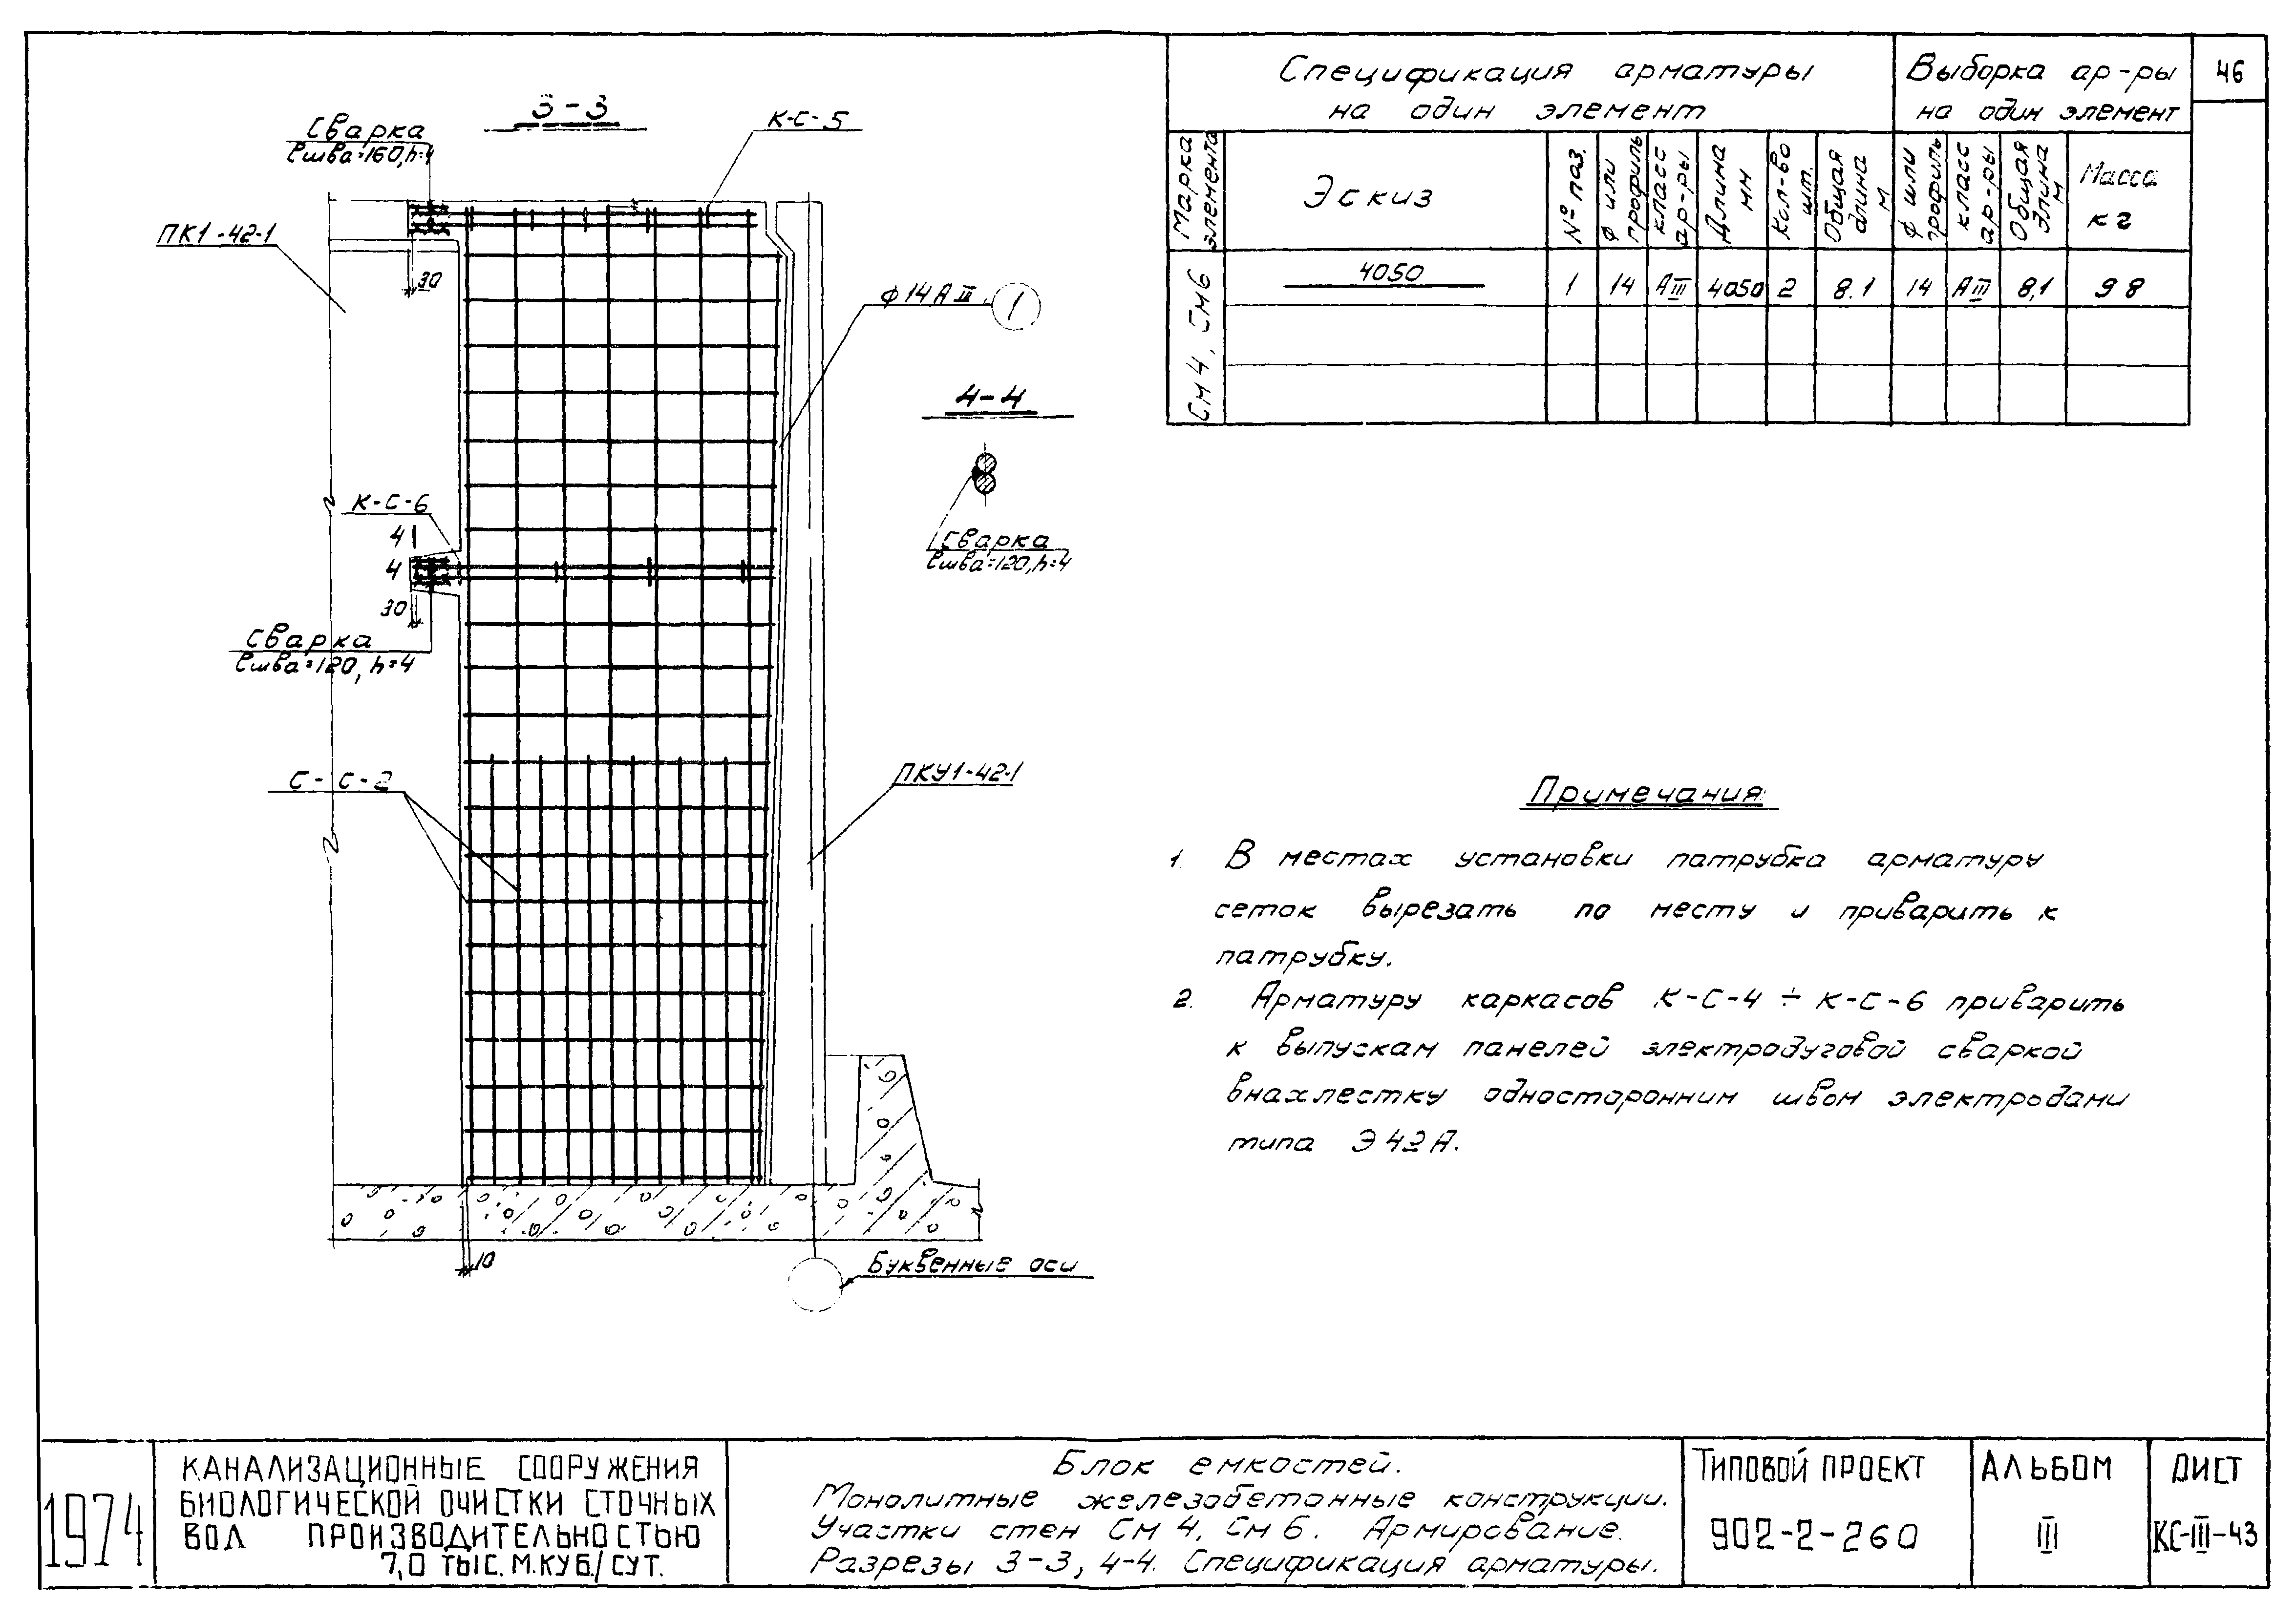 3-3
Сварка
ℓшва=160, h=4
К-С-5
ПК1-42-1
30
ф14АIII
1
4-4
Сварка
ℓшва=120, h=4
К-С-6
4
4
30
Сварка
ℓшва=120, h=4
С-С-2
ПКУ1-42-1
10
Буквенные оси
46
Спецификация арматуры
на один элемент
Выборка ар-ры
на один элемент
Марка элемента
Эскиз
№ поз.
ф или профиль
класс ар-ры
Длина мм
Кол-во шт.
Общая длина м
ф или профиль
класс ар-ры
Общая длина м
Масса кг
См4, См6
4050
1 14 АIII 4050 2 8.1 14 АIII 8,1 9 8
Примечания
1. В местах установки патрубка арматуру
сеток вырезать по месту и приварить к
патрубку.
2. Арматуру каркасов К-С-4 ÷ К-С-6 приварить
к выпускам панелей электродуговой сваркой
внахлестку односторонним швом электродами
типа Э42А.
1974
КАНАЛИЗАЦИОННЫЕ СООРУЖЕНИЯ
БИОЛОГИЧЕСКОЙ ОЧИСТКИ СТОЧНЫХ
ВОД ПРОИЗВОДИТЕЛЬНОСТЬЮ
7,0 ТЫС. М.КУБ./СУТ.
Блок емкостей.
Монолитные железобетонные конструкции.
Участки стен См4, См6. Армирование.
Разрезы 3-3, 4-4. Спецификация арматуры.
ТИПОВОЙ ПРОЕКТ
902-2-260
АЛЬБОМ
III
ЛИСТ
КС-III-43